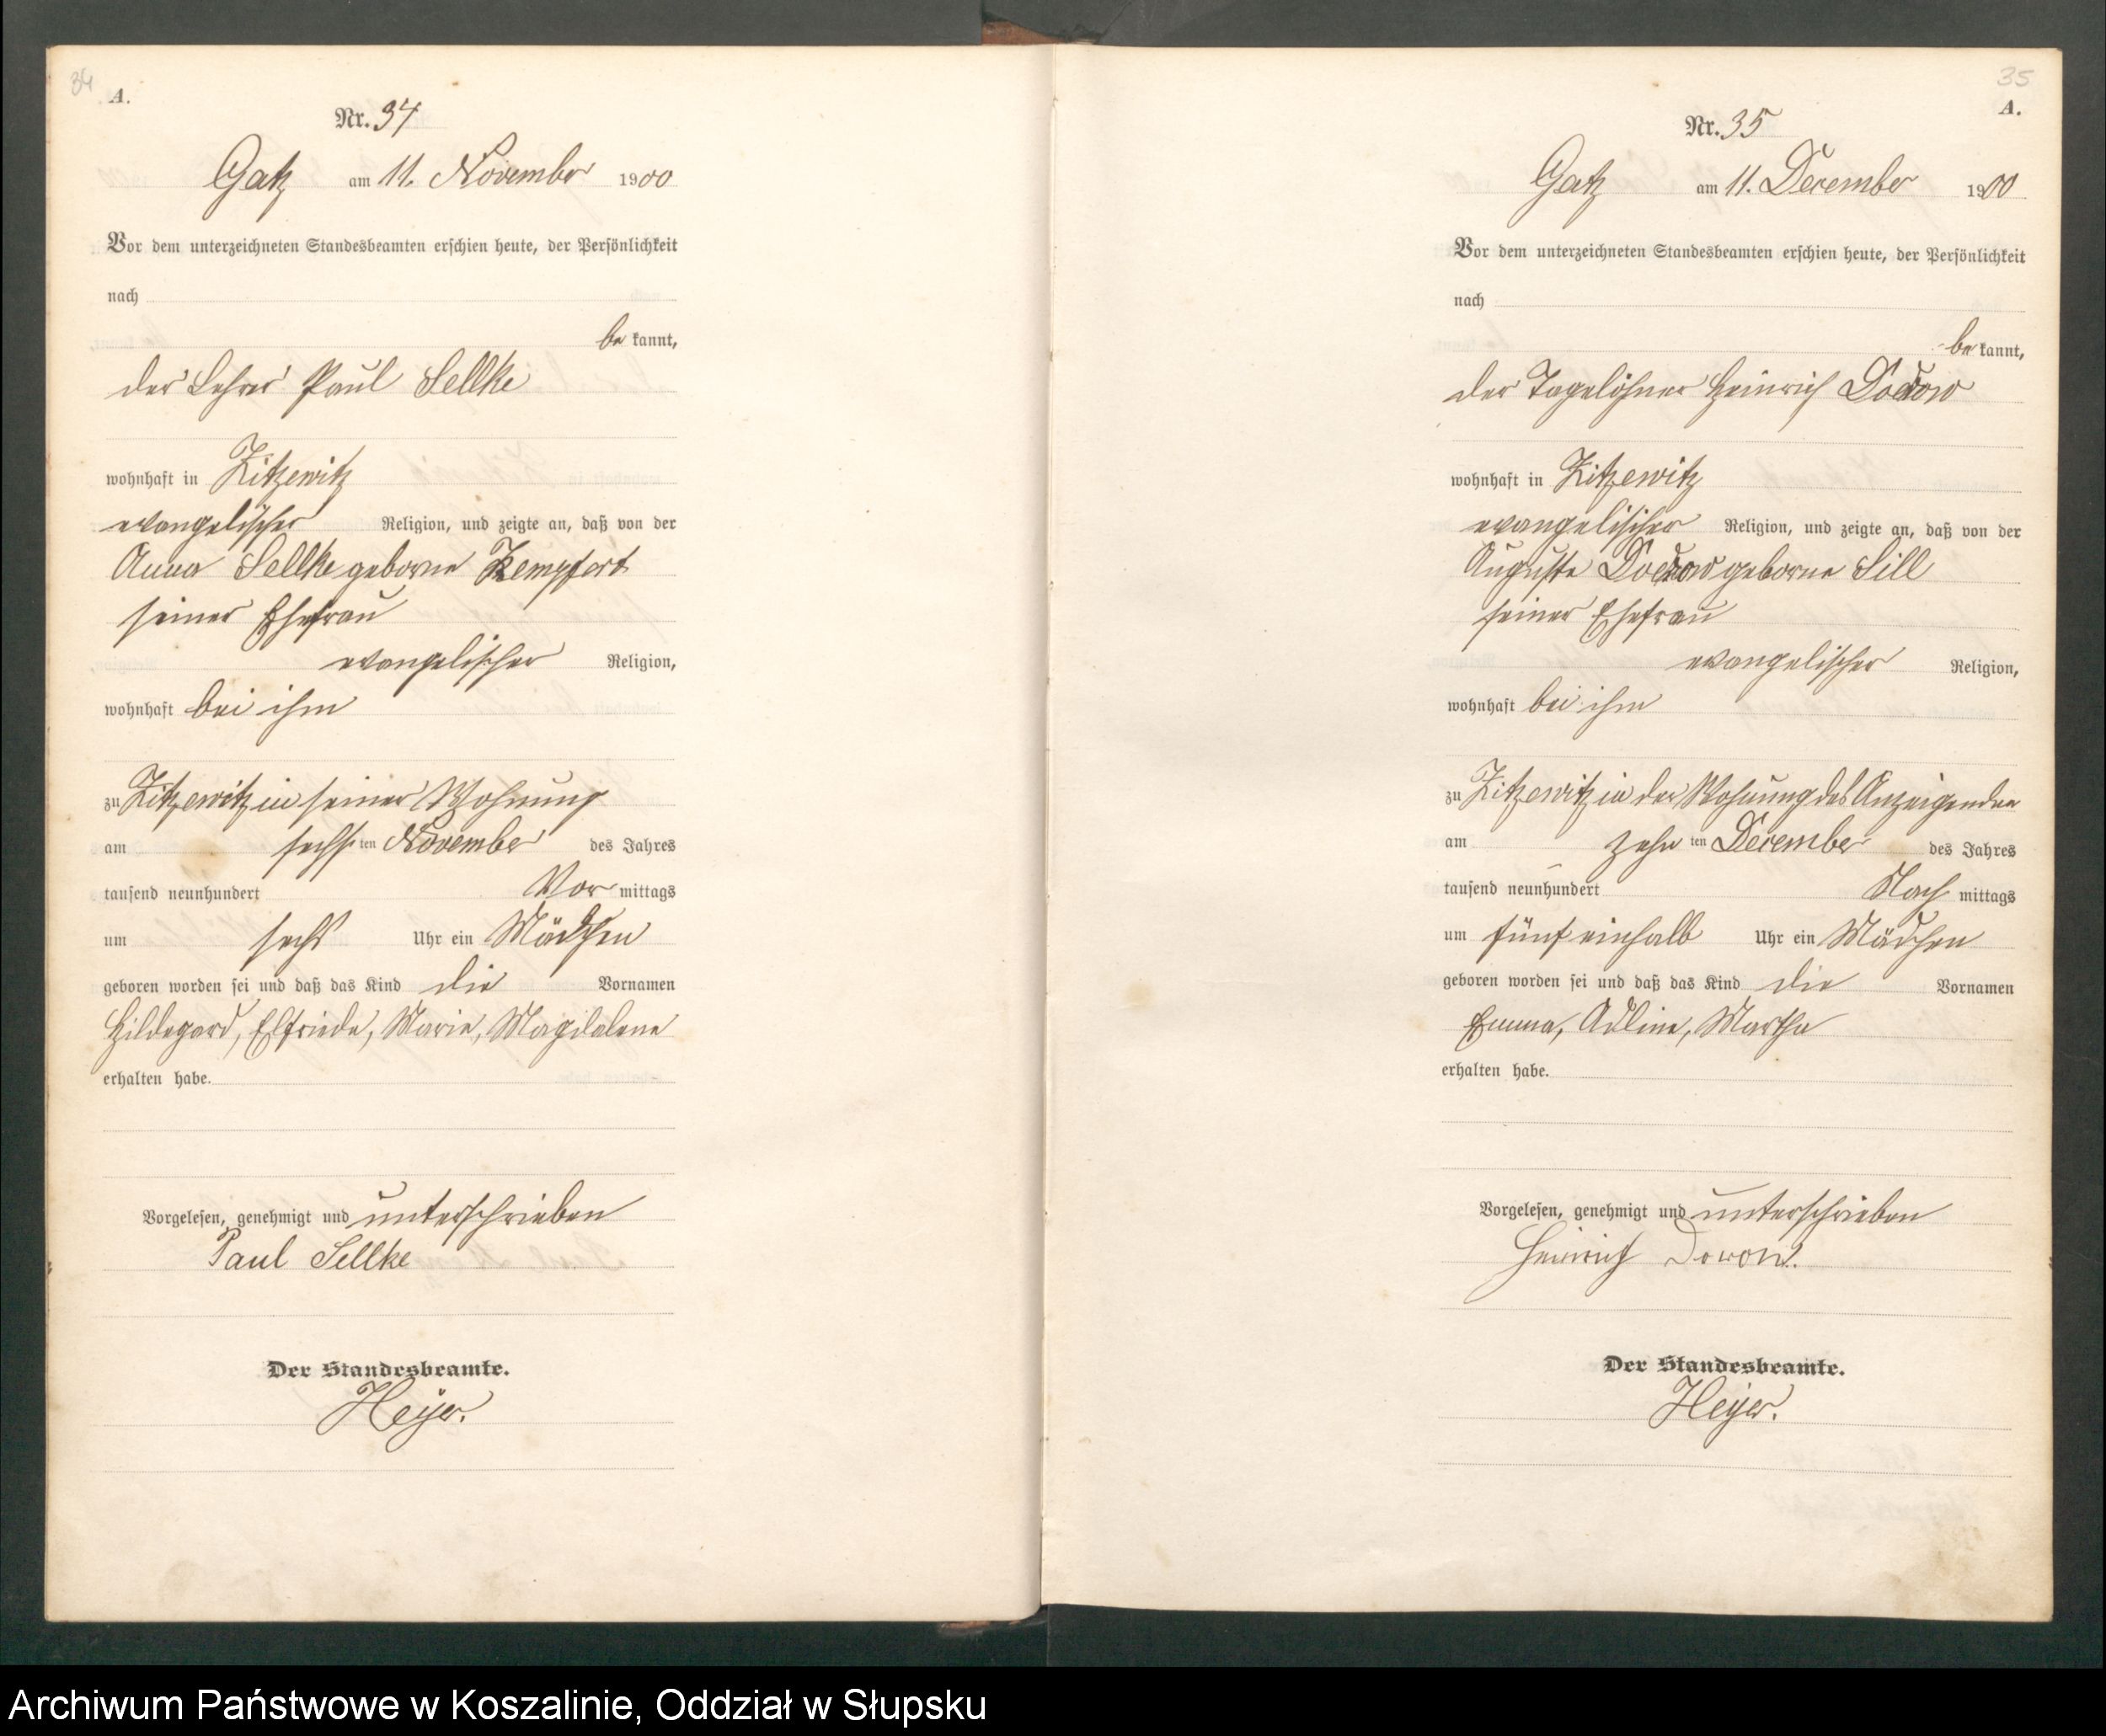 34
A.
Nr. 34
Gatz am 11. November 1900
Vor dem unterzeichneten Standesbeamten erschien heute, der Persönlichkeit
nach
be kannt,
der Lehrer Paul Sellke
wohnhaft in Zitzewitz
evangelischer Religion, und zeigte an, daß von der
Anna Sellke geborne Kempfert
seiner Ehefrau
evangelischer Religion,
wohnhaft bei ihm
zu Zitzewitz in seiner Wohnung
am sechsten November des Jahres
tausend neunhundert Vor mittags
um sechs Uhr ein Mädchen
geboren worden sei und daß das Kind die Vornamen
Hildegard, Elfriede, Marie, Magdalene
erhalten habe.
Vorgelesen, genehmigt und unterschrieben
Paul Sellke
Der Standesbeamte.
Heyer.
35
A.
Nr. 35
Gatz am 11. December 1900
Vor dem unterzeichneten Standesbeamten erschien heute, der Persönlichkeit
nach
be kannt,
der Tagelöhner Heinrich
wohnhaft in Zitzewitz
evangelischer Religion, und zeigte an, daß von der
Auguste geborne Sill
seiner Ehefrau
evangelischer Religion,
wohnhaft bei ihm
zu Zitzewitz in der Wohnung des Anzeigenden
am zehn ten December des Jahres
tausend neunhundert Nach mittags
um fünf einhalb Uhr ein Mädchen
geboren worden sei und daß das Kind die Vornamen
Emma, Adline, Martha
erhalten habe.
Vorgelesen, genehmigt und unterschrieben
Heinrich Dorow.
Der Standesbeamte.
Heyer.
Archiwum Państwowe w Koszalinie, Oddział w Słupsku